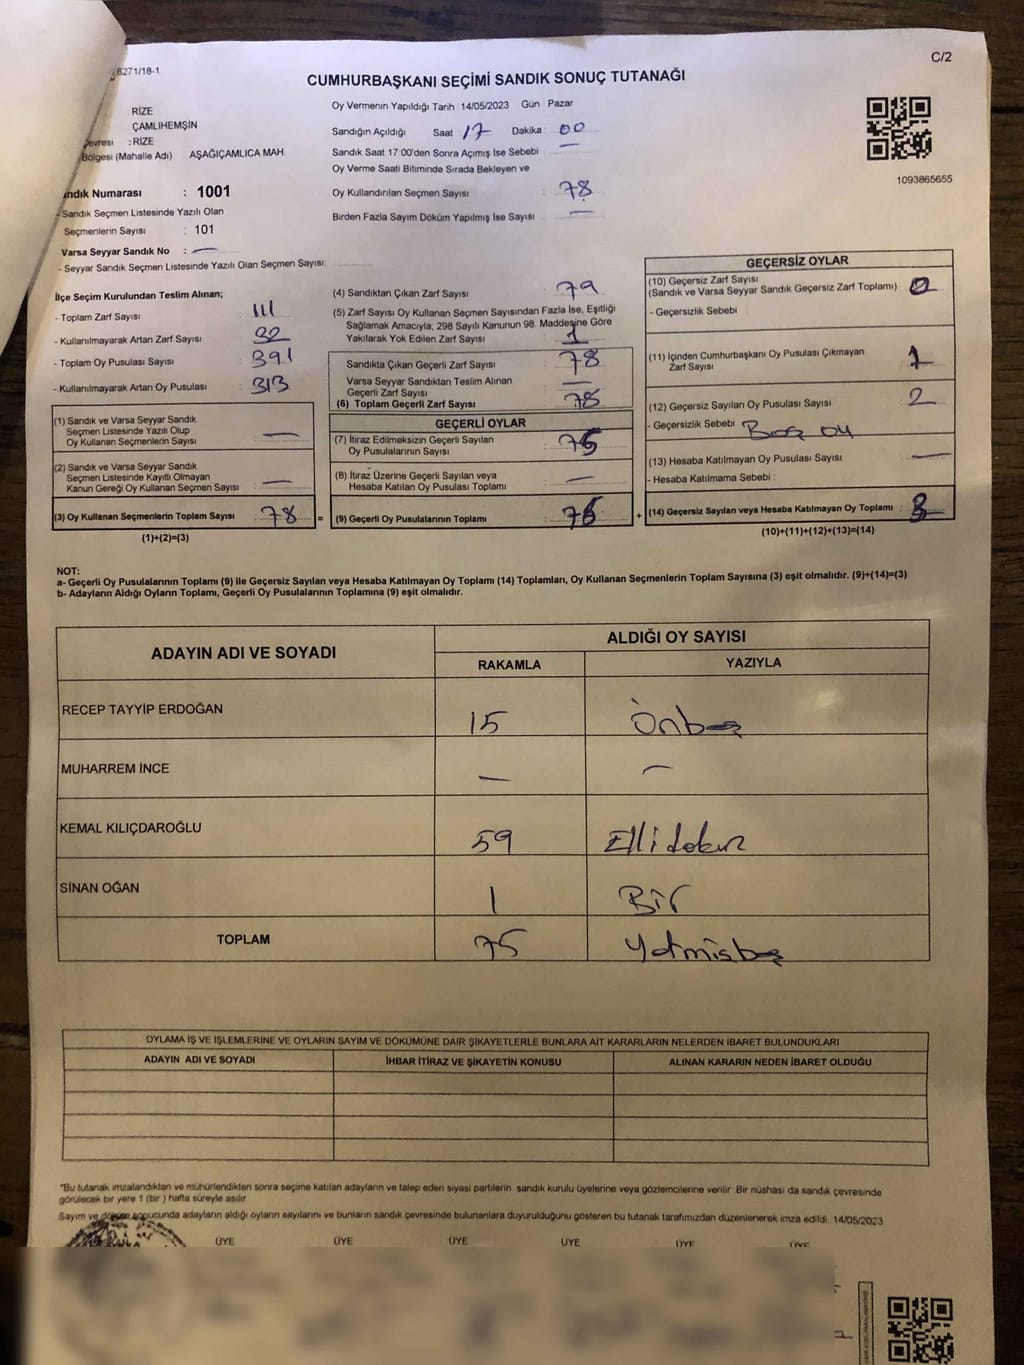 6271/18-1
C/2
CUMHURBAŞKANI SEÇİMİ SANDIK SONUÇ TUTANAĞI
RİZE
ÇAMLIHEMŞİN
: RİZE
Bölgesi (Mahalle Adı) AŞAĞIÇAMLICA MAH.
Oy Vermenin Yapıldığı Tarih : 14/05/2023 Gün Pazar
Sandığın Açıldığı Saat 17 Dakika : 00
Sandık Saat 17:00'den Sonra Açımış İse Sebebi : —
Oy Verme Saati Bitiminde Sırada Bekleyen ve
Oy Kullandırılan Seçmen Sayısı : 78
Birden Fazla Sayım Döküm Yapılmış İse Sayısı : —
1093865655
Numarası : 1001
- Sandık Seçmen Listesinde Yazılı Olan
Seçmenlerin Sayısı : 101
Varsa Seyyar Sandık No : —
- Seyyar Sandık Seçmen Listesinde Yazılı Olan Seçmen Sayısı:
İlçe Seçim Kurulundan Teslim Alınan;
- Toplam Zarf Sayısı : 111
- Kullanılmayarak Artan Zarf Sayısı : 32
- Toplam Oy Pusulası Sayısı : 391
- Kullanılmayarak Artan Oy Pusulası : 313
(1) Sandık ve Varsa Seyyar Sandık
Seçmen Listesinde Yazılı Olup
Oy Kullanan Seçmenlerin Sayısı : —
(2) Sandık ve Varsa Seyyar Sandık
Seçmen Listesinde Kayıtlı Olmayan
Kanun Gereği Oy Kullanan Seçmen Sayısı : —
(3) Oy Kullanan Seçmenlerin Toplam Sayısı : 78 =
(1)+(2)=(3)
(4) Sandıktan Çıkan Zarf Sayısı : 79
(5) Zarf Sayısı Oy Kullanan Seçmen Sayısından Fazla İse, Eşitliği
Sağlamak Amacıyla; 298 Sayılı Kanunun 98. Maddesine Göre
Yakılarak Yok Edilen Zarf Sayısı : 1
Sandıkta Çıkan Geçerli Zarf Sayısı : 78
Varsa Seyyar Sandıktan Teslim Alınan
Geçerli Zarf Sayısı : —
(6) Toplam Geçerli Zarf Sayısı : 78
GEÇERLİ OYLAR
(7) İtiraz Edilmeksizin Geçerli Sayılan
Oy Pusulalarının Sayısı : 75
(8) İtiraz Üzerine Geçerli Sayılan veya
Hesaba Katılan Oy Pusulası Toplamı : —
(9) Geçerli Oy Pusulalarının Toplamı : 75 +
GEÇERSİZ OYLAR
(10) Geçersiz Zarf Sayısı
(Sandık ve Varsa Seyyar Sandık Geçersiz Zarf Toplamı) : 0
- Geçersizlik Sebebi :
(11) İçinden Cumhurbaşkanı Oy Pusulası Çıkmayan
Zarf Sayısı : 1
(12) Geçersiz Sayılan Oy Pusulası Sayısı : 2
- Geçersizlik Sebebi : Boş oy
(13) Hesaba Katılmayan Oy Pusulası Sayısı : —
- Hesaba Katılmama Sebebi :
(14) Geçersiz Sayılan veya Hesaba Katılmayan Oy Toplamı : 3
(10)+(11)+(12)+(13)=(14)
NOT:
a- Geçerli Oy Pusulalarının Toplamı (9) ile Geçersiz Sayılan veya Hesaba Katılmayan Oy Toplamı (14) Toplamları, Oy Kullanan Seçmenlerin Toplam Sayısına (3) eşit olmalıdır. (9)+(14)=(3)
b- Adayların Aldığı Oyların Toplamı, Geçerli Oy Pusulalarının Toplamına (9) eşit olmalıdır.
ADAYIN ADI VE SOYADI
ALDIĞI OY SAYISI
RAKAMLA YAZIYLA
RECEP TAYYİP ERDOĞAN 15 Onbeş
MUHARREM İNCE — —
KEMAL KILIÇDAROĞLU 59 Elli dokuz
SİNAN OĞAN 1 Bir
TOPLAM 75 Yetmişbeş
OYLAMA İŞ VE İŞLEMLERİNE VE OYLARIN SAYIM VE DÖKÜMÜNE DAİR ŞİKAYETLERLE BUNLARA AİT KARARLARIN NELERDEN İBARET BULUNDUKLARI
ADAYIN ADI VE SOYADI İHBAR İTİRAZ VE ŞİKAYETİN KONUSU ALINAN KARARIN NEDEN İBARET OLDUĞU
*Bu tutanak imzalandıktan ve mühürlendikten sonra seçime katılan adayların ve talep eden siyasi partilerin sandık kurulu üyelerine veya gözlemcilerine verilir. Bir nüshası da sandık çevresinde
görülecek bir yere 1 (bir) hafta süreyle asılır.
Sayım ve döküm sonucunda adayların aldığı oyların sayılarını ve bunların sandık çevresinde bulunanlara duyurulduğunu gösteren bu tutanak tarafımızdan düzenlenerek imza edildi. 14/05/2023
ÜYE ÜYE ÜYE ÜYE ÜYE ÜYE